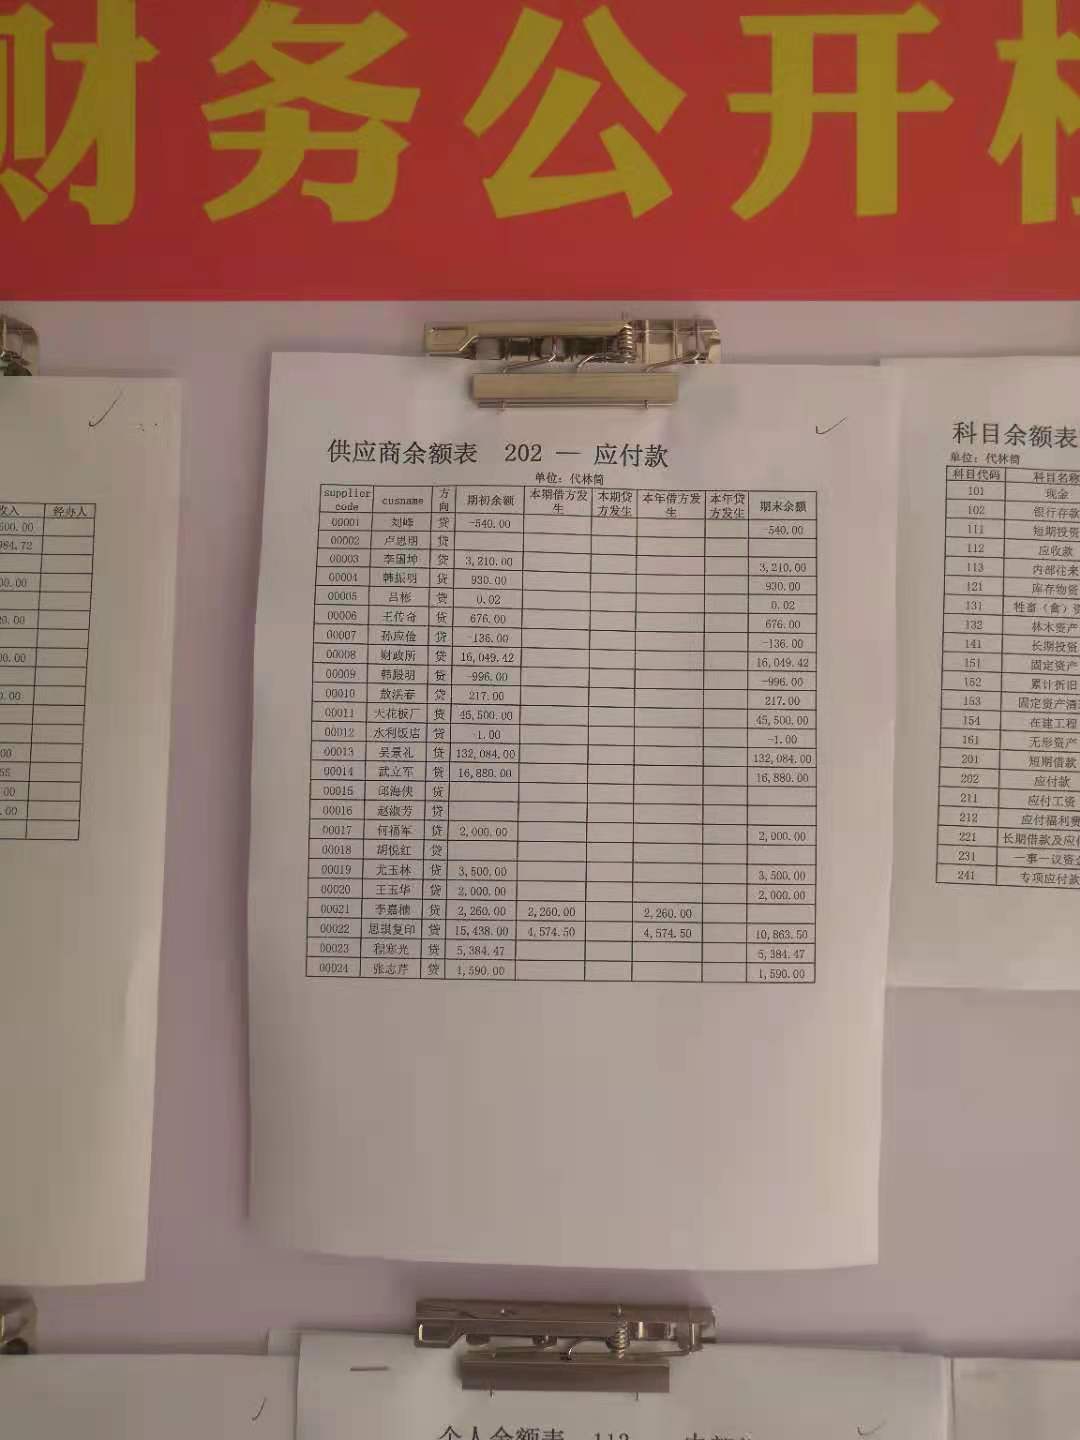 财务公开
供应商余额表 202 — 应付款
单位: 代林筒
supplier code cusname 方向 期初余额 本期借方发生 本期贷方发生 本年借方发生 本年贷方发生 期末余额
00001 刘峰 贷 -540.00 -540.00
00002 卢思明 贷
00003 李国坤 贷 3,210.00 3,210.00
00004 韩振明 贷 930.00 930.00
00005 吕彬 贷 0.02 0.02
00006 王传奇 贷 676.00 676.00
00007 孙应俭 贷 -136.00 -136.00
00008 财政所 贷 16,049.42 16,049.42
00009 韩殿明 贷 -996.00 -996.00
00010 敖洪春 贷 217.00 217.00
00011 天花板厂 贷 45,500.00 45,500.00
00012 水利饭店 贷 -1.00 -1.00
00013 吴景礼 贷 132,084.00 132,084.00
00014 武立军 贷 16,880.00 16,880.00
00015 邱海侠 贷
00016 赵淑芳 贷
00017 何福军 贷 2,000.00 2,000.00
00018 胡悦红 贷
00019 尤玉林 贷 3,500.00 3,500.00
00020 王玉华 贷 2,000.00 2,000.00
00021 李嘉楠 贷 2,260.00 2,260.00 2,260.00
00022 思琪复印 贷 15,438.00 4,574.50 4,574.50 10,863.50
00023 程寒光 贷 5,384.47 5,384.47
00024 张志芹 贷 1,590.00 1,590.00
收入 经办人
600.00
984.72
00.00
20.00
00.00
0.00
00
55
.00
.00
科目余额表
单位: 代林筒
科目代码 科目名称
101 现金
102 银行存款
111 短期投资
112 应收款
113 内部往来
121 库存物资
131 牲畜（禽）资
132 林木资产
141 长期投资
151 固定资产
152 累计折旧
153 固定资产清
154 在建工程
161 无形资产
201 短期借款
202 应付款
211 应付工资
212 应付福利费
221 长期借款及应付
231 一事一议资金
241 专项应付款
个人余额表 113